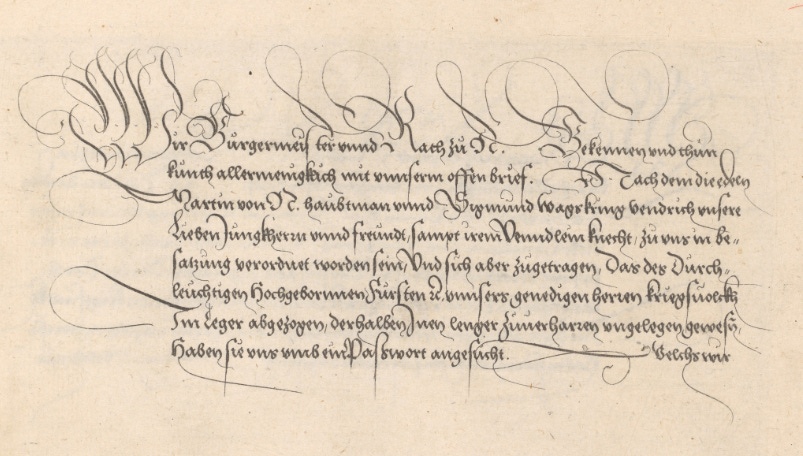 Wir Burgermeister vnnd Rath zu N. Bekennen vnd thun
kunth allermenigklich mit vnnserm offen brief. Nach dem die edeln
Martin von N. haubtman vnnd Sigmund wagskring vendrich vnsere
Lieben Junckherrn vnnd freundt, sampt irem Venndlein knecht, zu vns in be-
satzung verordnet worden sein, Und sich aber zugetragen, Das des Durch-
leuchtigen Hochgebornnen Fursten vnnsers genedigen herren kriegsuolckh
Im Leger abgezogen, derhalben Jnen lenger zuuerharren vngelegen gewesn,
Haben sie vns vmb ein Passwort angesucht. Welchs wir